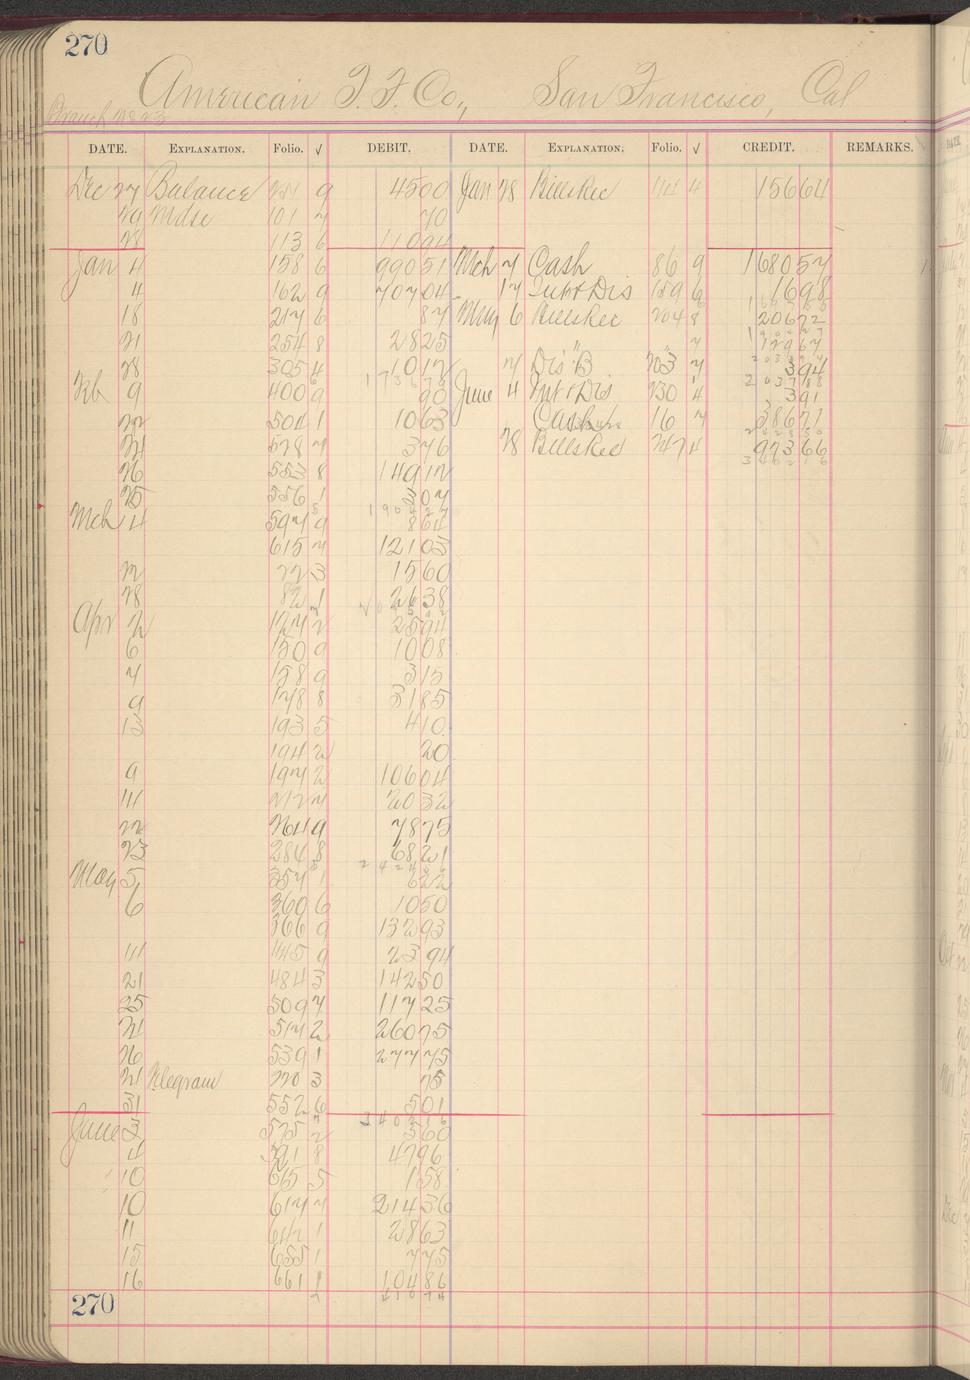 270
American T. F. Co., San Francisco, Cal
Branch No 23
DATE. EXPLANATION. Folio. √ DEBIT. DATE. EXPLANATION. Folio. √ CREDIT. REMARKS.
Dec 27 Balance 9 4500 Jan 28 Bills Rec 114 4 15664
29 Mdse 101 7 70
28 113 6 11094
Jan 4 158 6 99051 Mch 7 Cash 86 9 168057
4 162 9 70704 17 Int & Dis 189 6 1698
18 217 6 87 May 6 Bills Rec 204 8 20672
21 254 8 2825 " 7 12967
28 305 4 1012 21 Dis "B 203 7 394
Feb 9 400 9 90 June 4 Int & Dis 230 4 391
22 501 1 1063 Cash 16 7 38671
24 528 7 376 28 Bills Rec 247 4 97366
26 553 8 14912 340216
25 556 1 307
Mch 4 597 9 864
615 7 12103
22 22 3 1560
28 82 1 2638
Apr 2 127 2 2594
6 150 9 1008
7 158 9 315
9 178 8 3185
13 193 5 410
194 2 20
9 197 2 10604
14 212 7 2032
22 264 9 7875
23 284 8 6821
May 5 357 1 622
6 360 6 1050
366 9 13293
14 445 9 2394
21 484 3 14250
25 509 7 11725
21 517 2 26075
26 539 1 27775
21 Telegram 220 3 75
31 552 6 501
340216
June 3 575 2 360
4 591 8 4796
10 565 5 158
10 617 7 21436
11 642 1 2863
15 655 1 775
16 661 1 10486
270